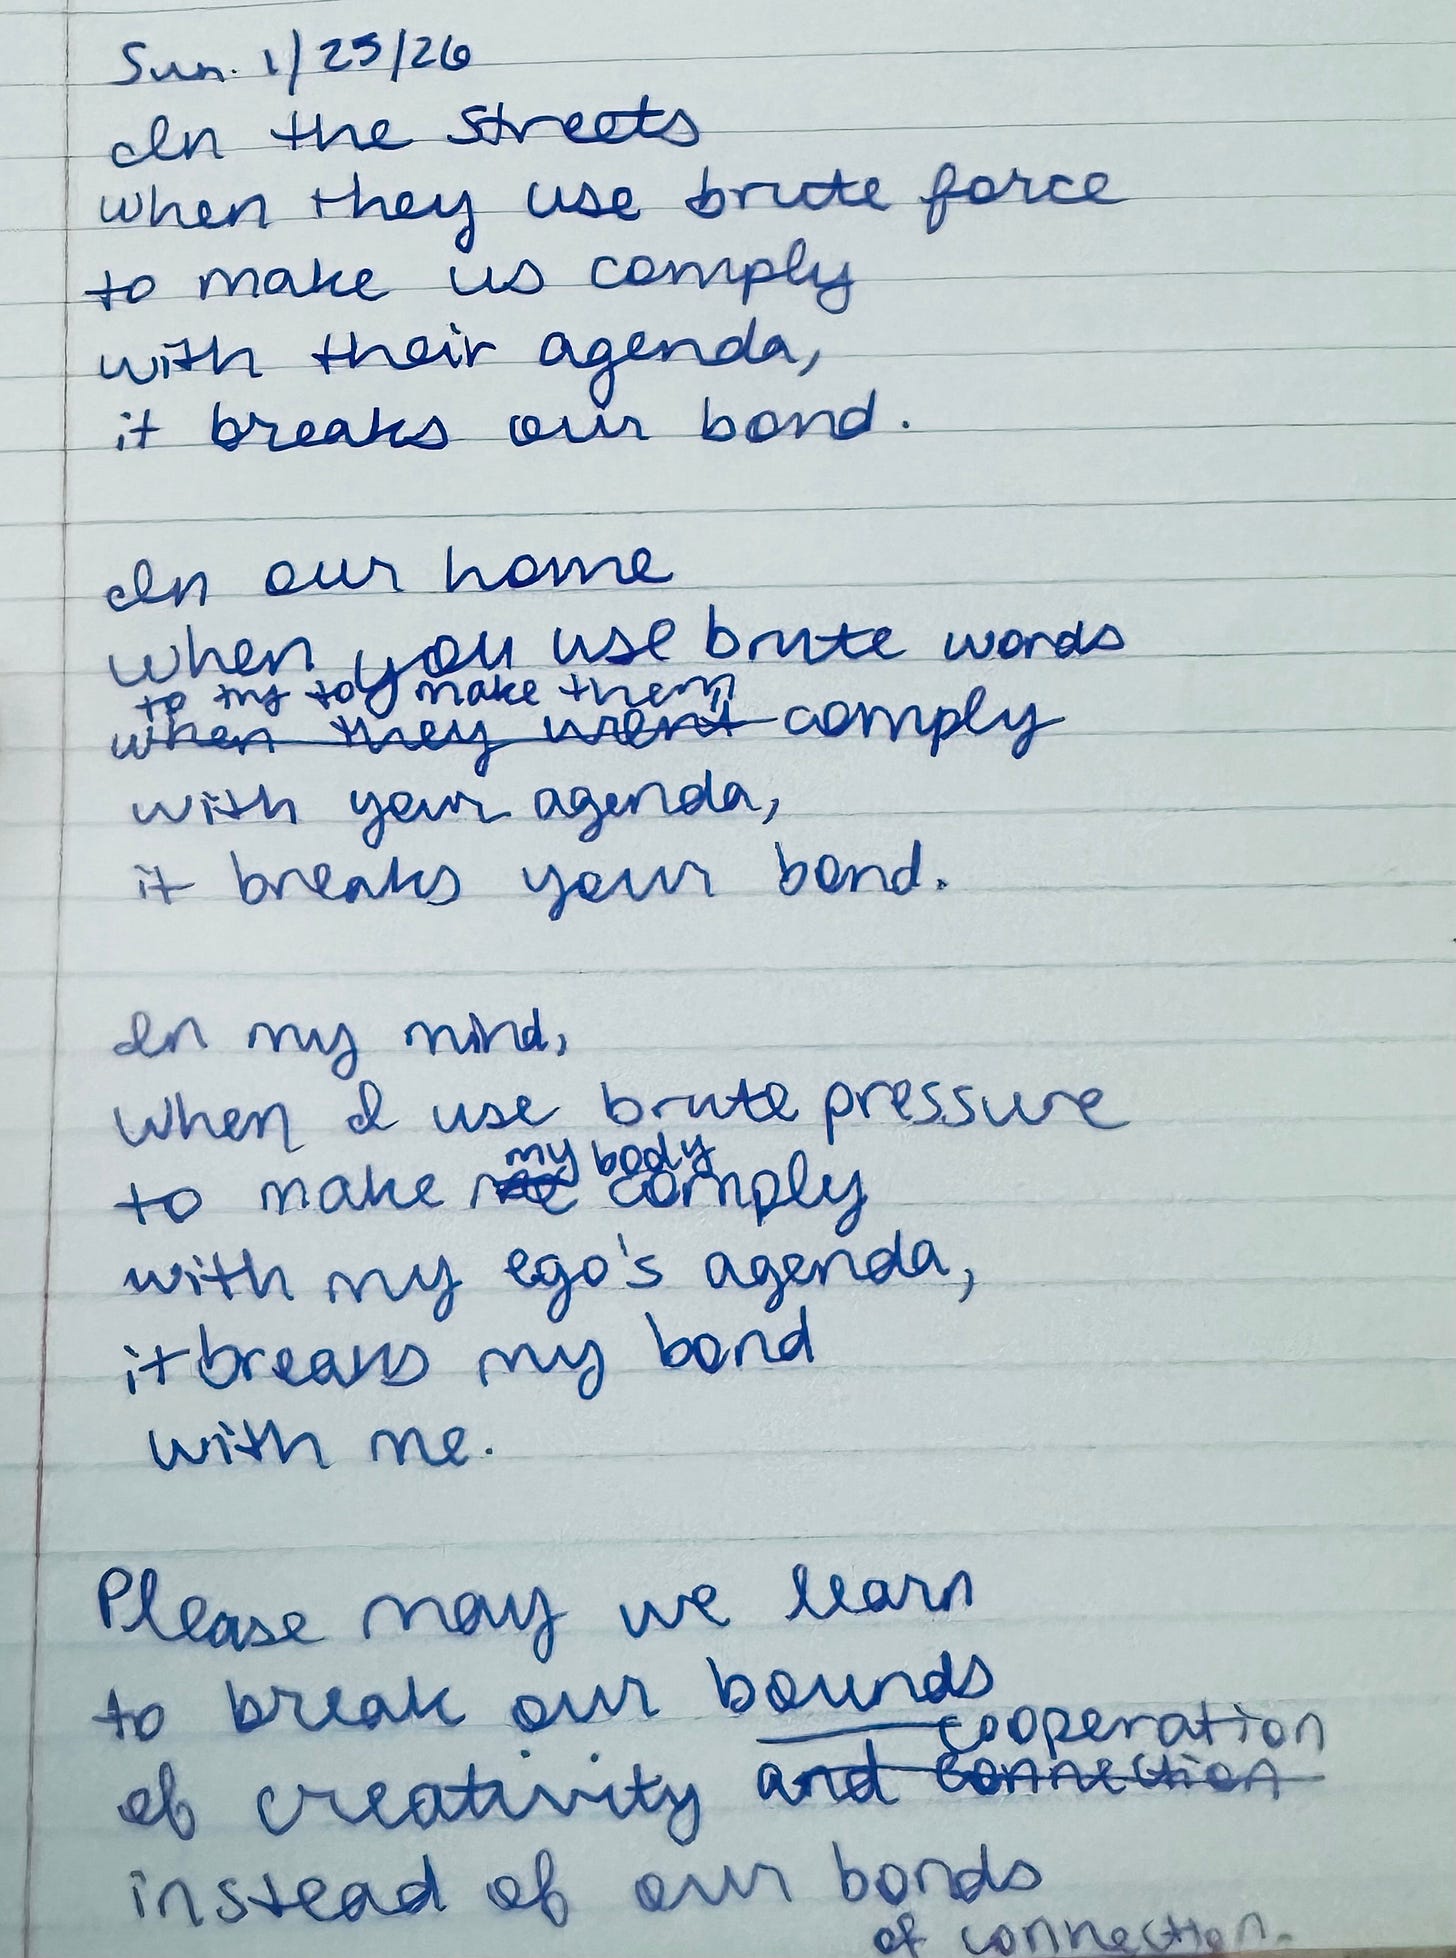 Sun. 1/25/26
In the streets
when they use brute force
to make us comply
with their agenda,
it breaks our bond.
In our home
when you use brute words
to try to make them
when they won't comply
with your agenda,
it breaks your bond.
In my mind,
when I use brute pressure
my body
to make me comply
with my ego's agenda,
it breaks my bond
with me.
Please may we learn
to break our bounds
cooperation
of creativity and connection
instead of our bonds
of connection.